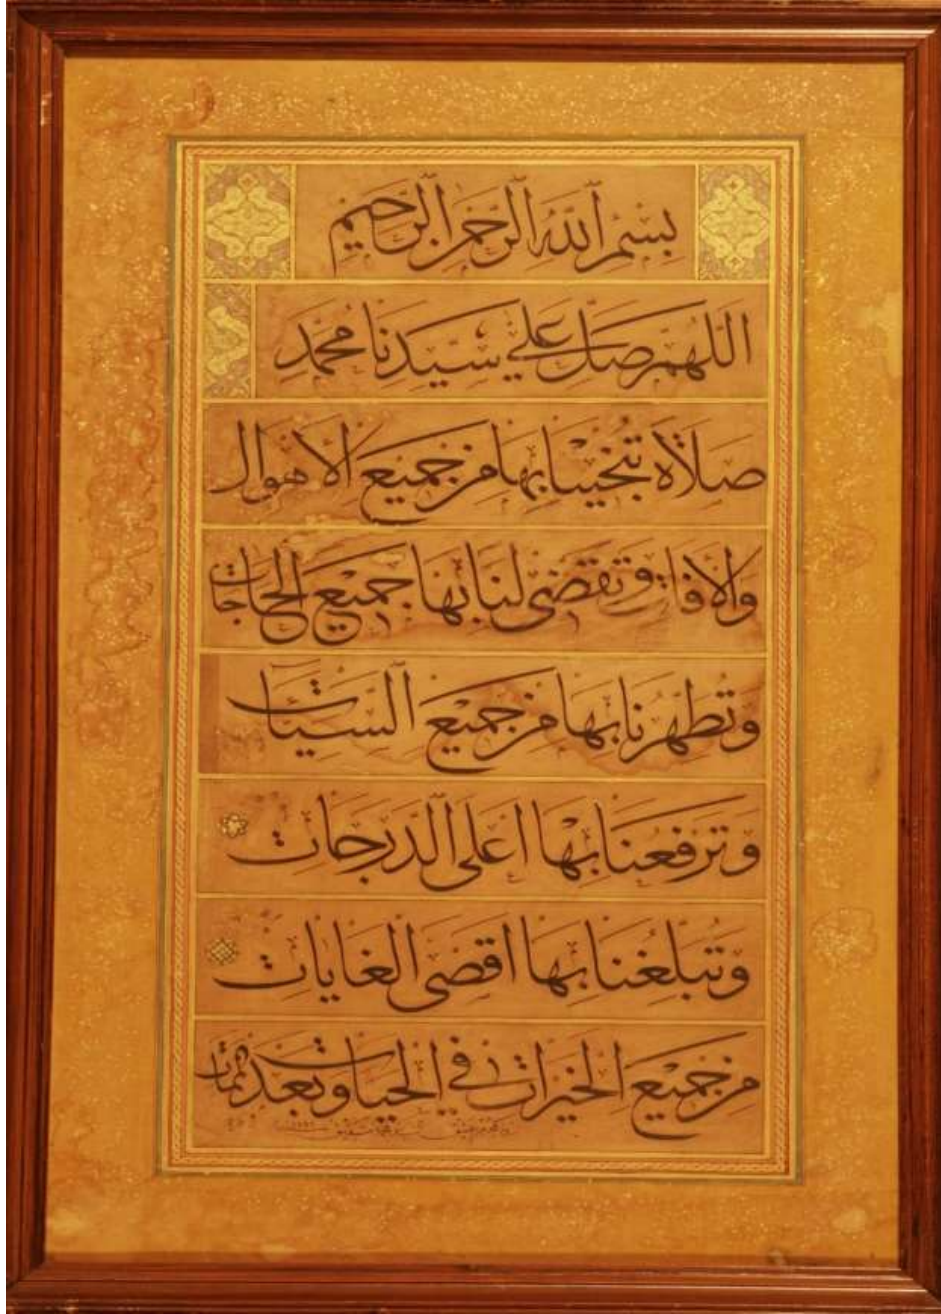 بِسْمِ اللهِ الرَّحْمٰنِ الرَّحِيْمِ
اللّهُمَّ صَلِّ عَلٰى سَيِّدِنَا مُحَمَّدٍ
صَلَاةً تُنْجِيْنَا بِهَا مِنْ جَمِيْعِ الْاَهْوَالِ
وَالْاٰفَاتِ وَتَقْضِى لَنَا بِهَا جَمِيْعَ الْحَاجَاتِ
وَتُطَهِّرُنَا بِهَا مِنْ جَمِيْعِ السَّيِّئَاتِ
وَتَرْفَعُنَا بِهَا اَعْلَى الدَّرَجَاتِ
وَتُبَلِّغُنَا بِهَا اَقْصَى الْغَايَاتِ
مِنْ جَمِيْعِ الْخَيْرَاتِ فِي الْحَيَاتِ وَبَعْدَ الْمَمَاتِ